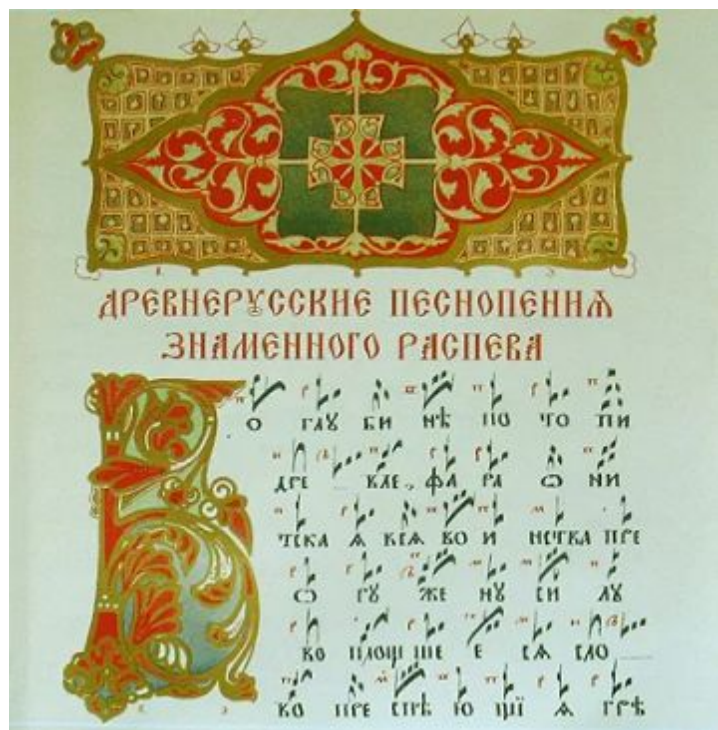 ДРЕВНЕРꙊССКИЕ ПЕСНОПЕНИѦ
ЗНАМЕННОГО РАСПЕВА
В О ГЛꙊ БИ НѢ ПО ТО ПИ
ДРЕ ВЛЕ, ФА РА Ѡ НИ
ТСКА Ѧ ВСѦ ВО И НСТВА ПРЕ
Ѡ РꙊ ЖЕ НꙊ СИ ЛꙊ
ВО ПЛОЩ ШЕ Е СѦ СЛО
ВО ПРЕ Ю ЩІ Ѧ ГРѢ